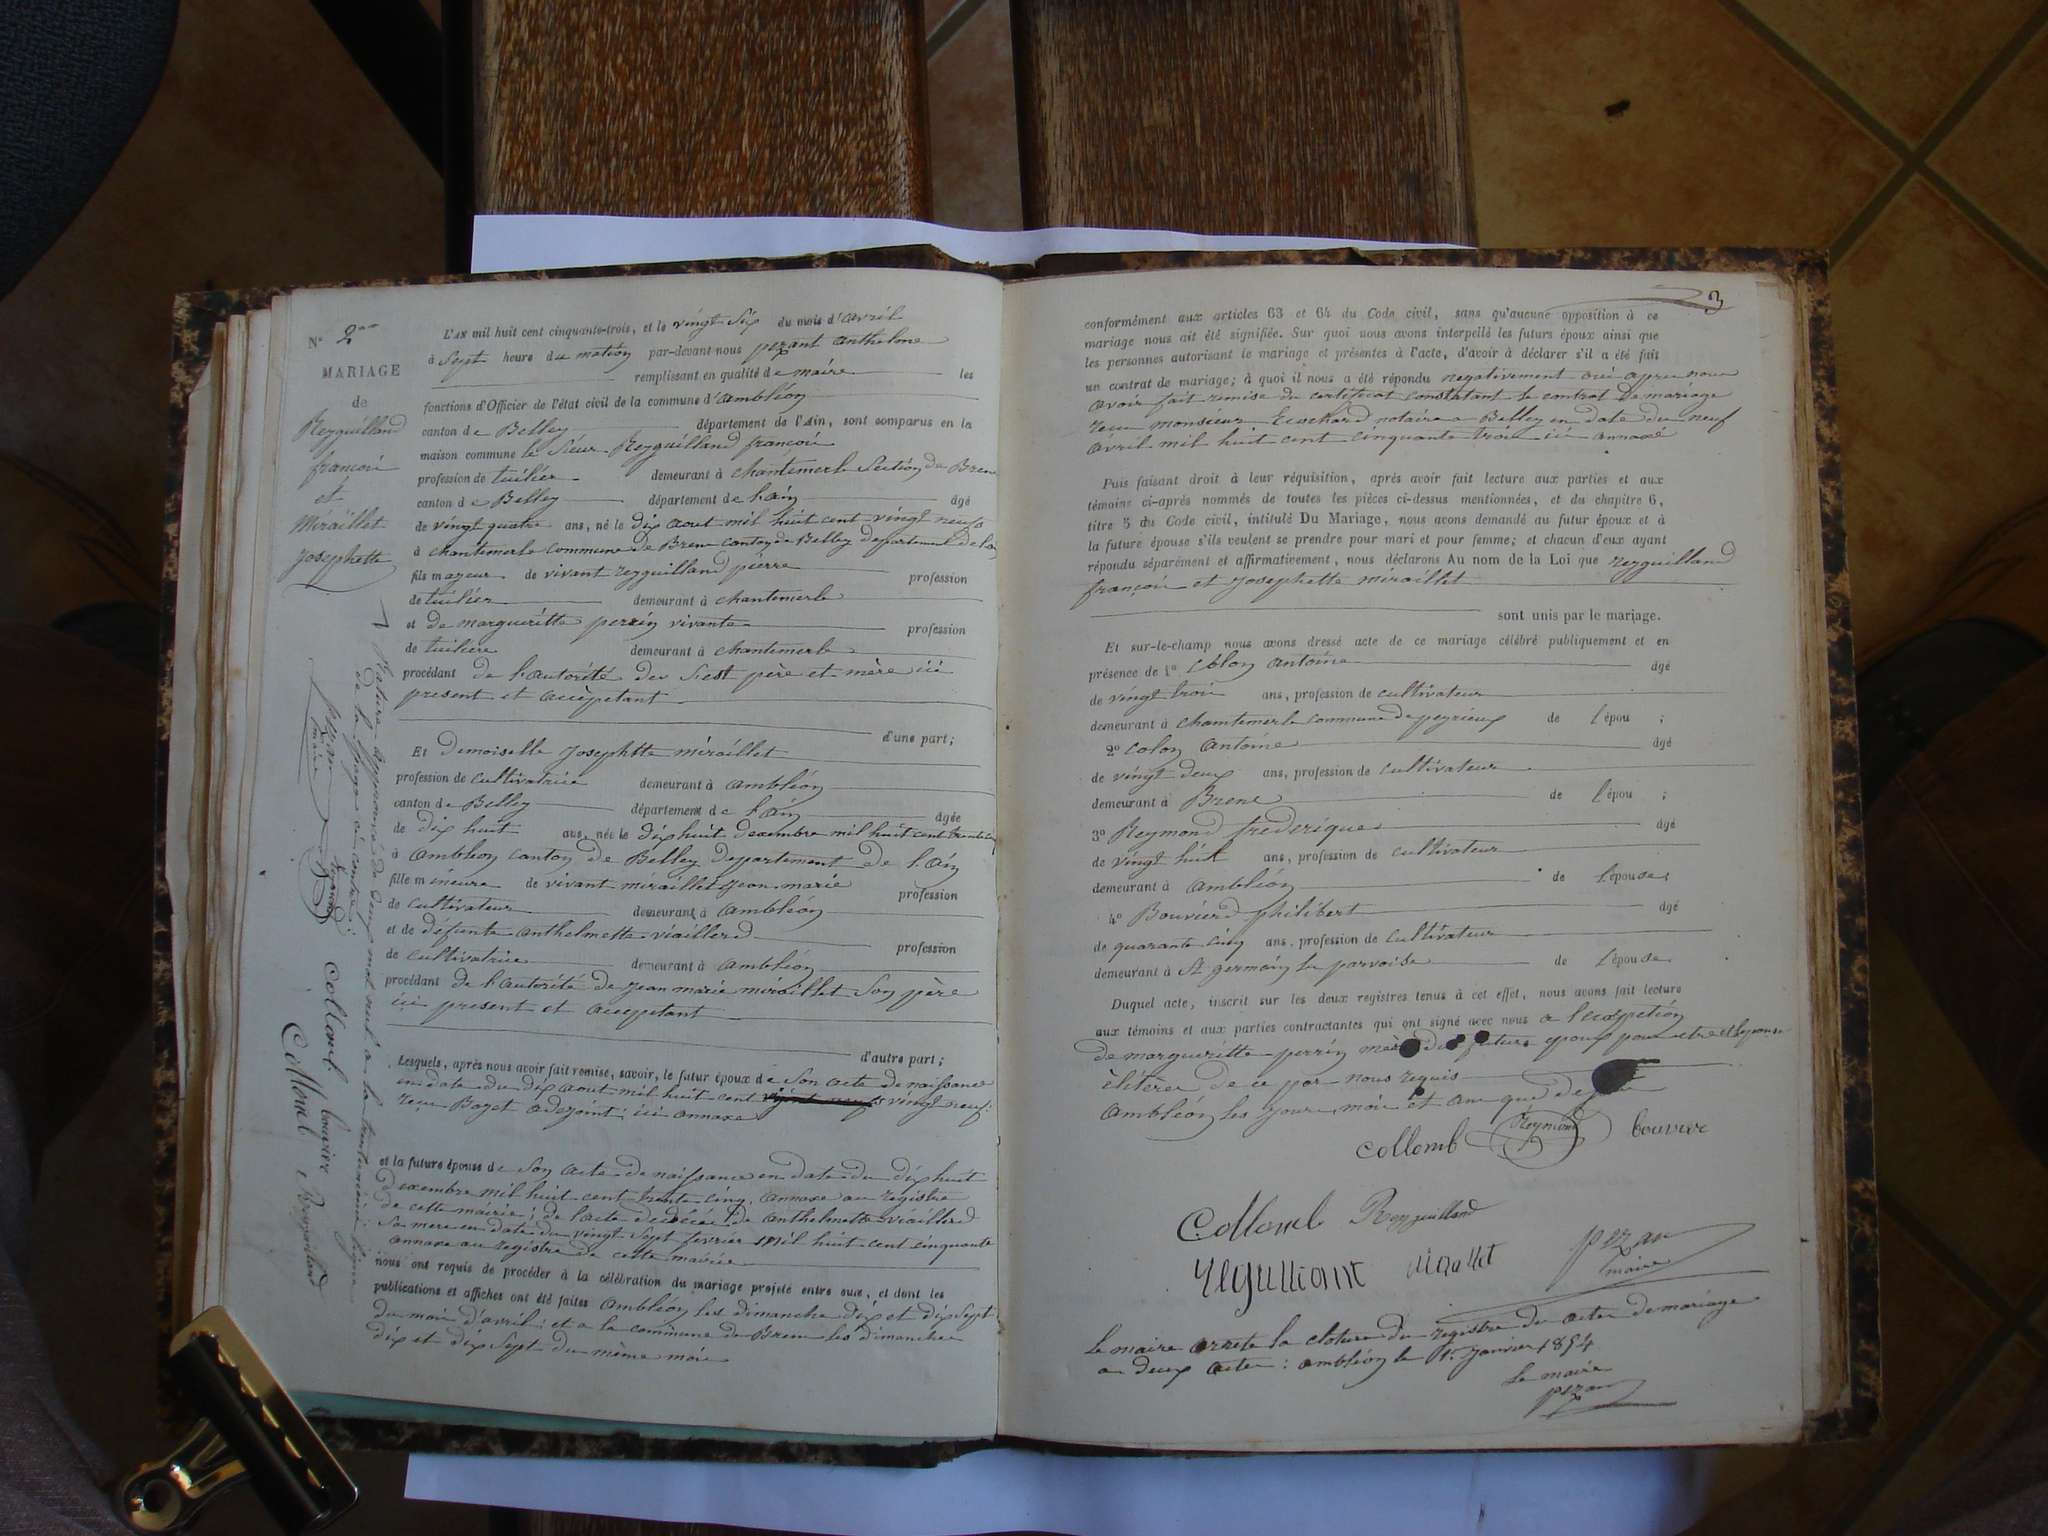 N° 2
MARIAGE
de
Reyguilland
françois
et
Miraillet
Josephette
L'AN mil huit cent cinquante-trois, et le vingt Six du mois d'avril
à Sept heure du matin par-devant nous pezant anthelme
remplissant en qualité de maire les
fonctions d'Officier de l'état civil de la commune d'ambléon
canton de Belley département de l'Ain, sont comparus en la
maison commune le Sieur Reyguilland françois
profession de tuilier demeurant à chantemerle Section de Brens
canton de Belley département de l'ain âgé
de vingt quatre ans, né le dix aout mil huit cent vingt neuf
à chantemerle commune de Brens canton de Belley departement de l'ain
fils mazeur de vivant reyguilland pierre profession
de tuilier demeurant à chantemerle
et de margueritte perrin vivante profession
de tuiliere demeurant à chantemerle
procédant de l'autorité des père et mère ici
present et accèpetant
d'une part;
Et Demoiselle Josephtte miraillet
profession de cultivatrice demeurant à ambléon
canton de Belley département de l'ain âgée
de dix huit ans, née le dix huit decembre mil huit cent trente cinq
à ambléon canton de Belley departement de l'ain
fille mineure de vivant miraillet jean marie profession
de cultivateur demeurant à ambléon
et de défunte anthelmette viaillerd profession
de cultivatrice demeurant à ambléon
procédant de l'autorité de jean marie miraillet Son père
ici present et accepetant
d'autre part;
Lesquels, après nous avoir fait remise, savoir, le futur époux de Son acte de naissance
en date du dix aout mil huit cent vingt neuf
reçu Bozet adezoint ici annaxe
et la future épouse de Son acte de naissance en date du dix huit
decembre mil huit cent trente cinq annaxe au registre
de cette mairie; de l'acte de décée de anthelmette viaillerd
Sa mere en date du vingt Sept fevrier mil huit cent cinquante
annaxe au registre de cette mairie
nous ont requis de procéder à la célébration du mariage projeté entre eux, et dont les
publications et affiches ont été faites ambléon les dimanche dix et dix Sept
du mois d'avril: et a la commune de Brens les dimanche
dix et dix Sept du même mois
Rature approuvé de deux mot nul a la trentunieme ligne
de la page ci contre
maire
Reymond
Collomb bouvier
Collomb Reyguilland
3
conformément aux articles 63 et 64 du Code civil, sans qu'aucune opposition à ce
mariage nous ait été signifiée. Sur quoi nous avons interpellé les futurs époux ainsi que
les personnes autorisant le mariage et présentes à l'acte, d'avoir à déclarer s'il a été fait
un contrat de mariage; à quoi il nous a été répondu negativement oui apres nous
avoir fait remise du certificat constatant le contrat de mariage
recu monsieur Ecochard notaire a Belley en date du neuf
avril mil huit cent cinquante trois ici annaxé
Puis faisant droit à leur réquisition, après avoir fait lecture aux parties et aux
témoins ci-après nommés de toutes les pièces ci-dessus mentionnées, et du chapitre 6,
titre 5 du Code civil, intitulé Du Mariage, nous avons demandé au futur époux et à
la future épouse s'ils veulent se prendre pour mari et pour femme; et chacun d'eux ayant
répondu séparément et affirmativement, nous déclarons Au nom de la Loi que reyguilland
françois et Josephette miraillet
sont unis par le mariage.
Et sur-le-champ nous avons dressé acte de ce mariage célébré publiquement et en
présence de 1° Colon antoine âgé
de vingt trois ans, profession de cultivateur
demeurant à chamtemerle commune de peyrieux de l'épou ;
2° colon antoine âgé
de vingt deux ans, profession de cultivateur
demeurant à Brens de l'épou ;
3° Reymond frederique âgé
de vingt huit ans, profession de cultivateur
demeurant à ambléon de l'épouse;
4° Bouvierd philibert âgé
de quarante cinq ans, profession de cultivateur
demeurant à St germain les parvoise de l'épouse
Duquel acte, inscrit sur les deux registres tenus à cet effet, nous avons fait lecture
aux témoins et aux parties contractantes qui ont signé avec nous a l'exception
de margueritte perrin mère du future epoux pour etre et lepouse
èliterer de ce par nous requis
ambléon les jour mois et an que de
collomb Reymond bouvier
Collomb Reyguilland
reguilliant miraillet pezan
maire
Le maire arrete la cloture du registre des actes de mariage
a deux actes: ambléon le 1r janvier 1854
Le maire
pezan